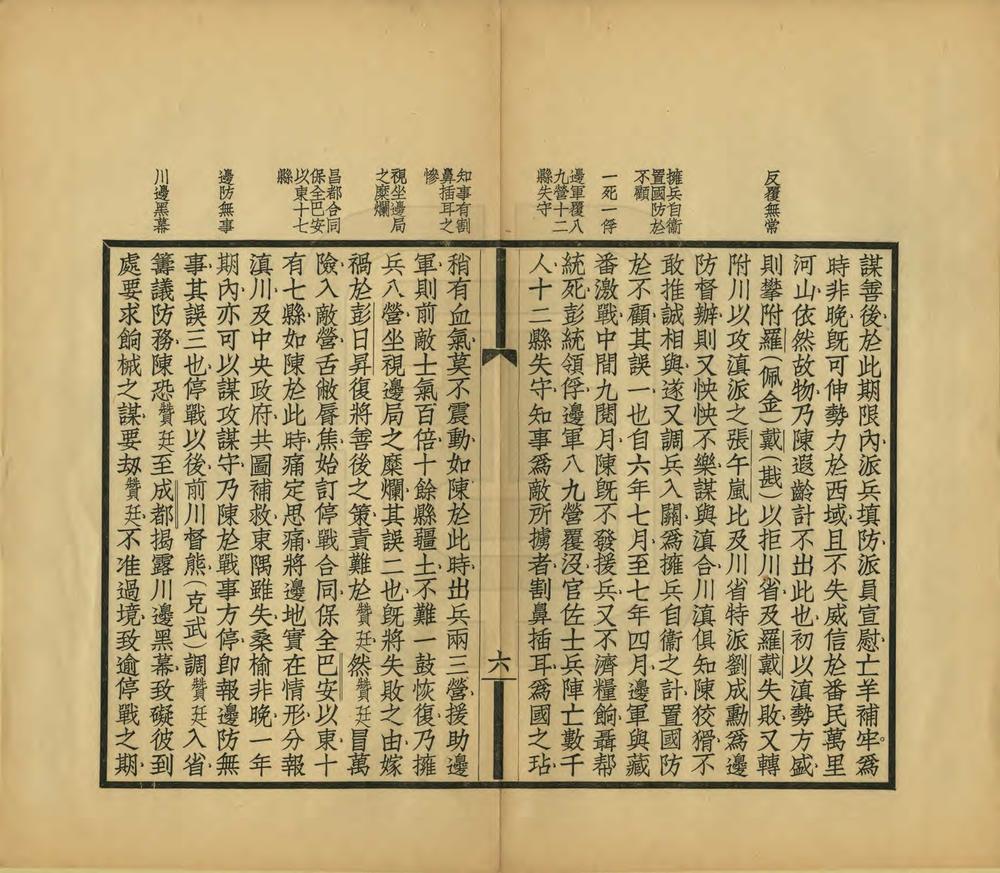 反覆無常
擁兵自衞
置國防於
不顧
一死一俘
邊軍覆八
九營十二
縣失守
謀善後於此期限內派兵填防派員宣慰亡羊補牢爲
時非晚旣可伸勢力於西域且不失威信於番民萬里
河山依然故物乃陳遐齡計不出此也初以滇勢方盛
則攀附羅(佩金)戴(戡)以拒川省及羅戴失敗又轉
附川以攻滇派之張午嵐比及川省特派劉成勳爲邊
防督辦則又怏怏不樂謀與滇合川滇俱知陳狡猾不
敢推誠相與遂又調兵入關爲擁兵自衞之計置國防
於不顧其誤一也自六年七月至七年四月邊軍與藏
番激戰中間九閱月陳旣不發援兵又不濟糧餉聶帮
統死彭統領俘邊軍八九營覆沒官佐士兵陣亡數千
人十二縣失守知事爲敵所擄者割鼻插耳爲國之玷
六
知事有割
鼻插耳之
慘
視坐邊局
之糜爛
昌都合同
保全巴安
以東十七
縣
邊防無事
川邊黑幕
稍有血氣莫不震動如陳於此時出兵兩三營援助邊
軍則前敵士氣百倍十餘縣疆土不難一鼓恢復乃擁
兵八營坐視邊局之糜爛其誤二也旣將失敗之由嫁
禍於彭日昇復將善後之策責難於贊廷然贊廷冒萬
險入敵營舌敝脣焦始訂停戰合同保全巴安以東十
有七縣如陳於此時痛定思痛將邊地實在情形分報
滇川及中央政府共圖補救東隅雖失桑榆非晚一年
期內亦可以謀攻謀守乃陳於戰事方停卽報邊防無
事其誤三也停戰以後前川督熊(克武)調贊廷入省
籌議防務陳恐贊廷至成都揭露川邊黑幕致礙彼到
處要求餉械之謀要刼贊廷不准過境致逾停戰之期